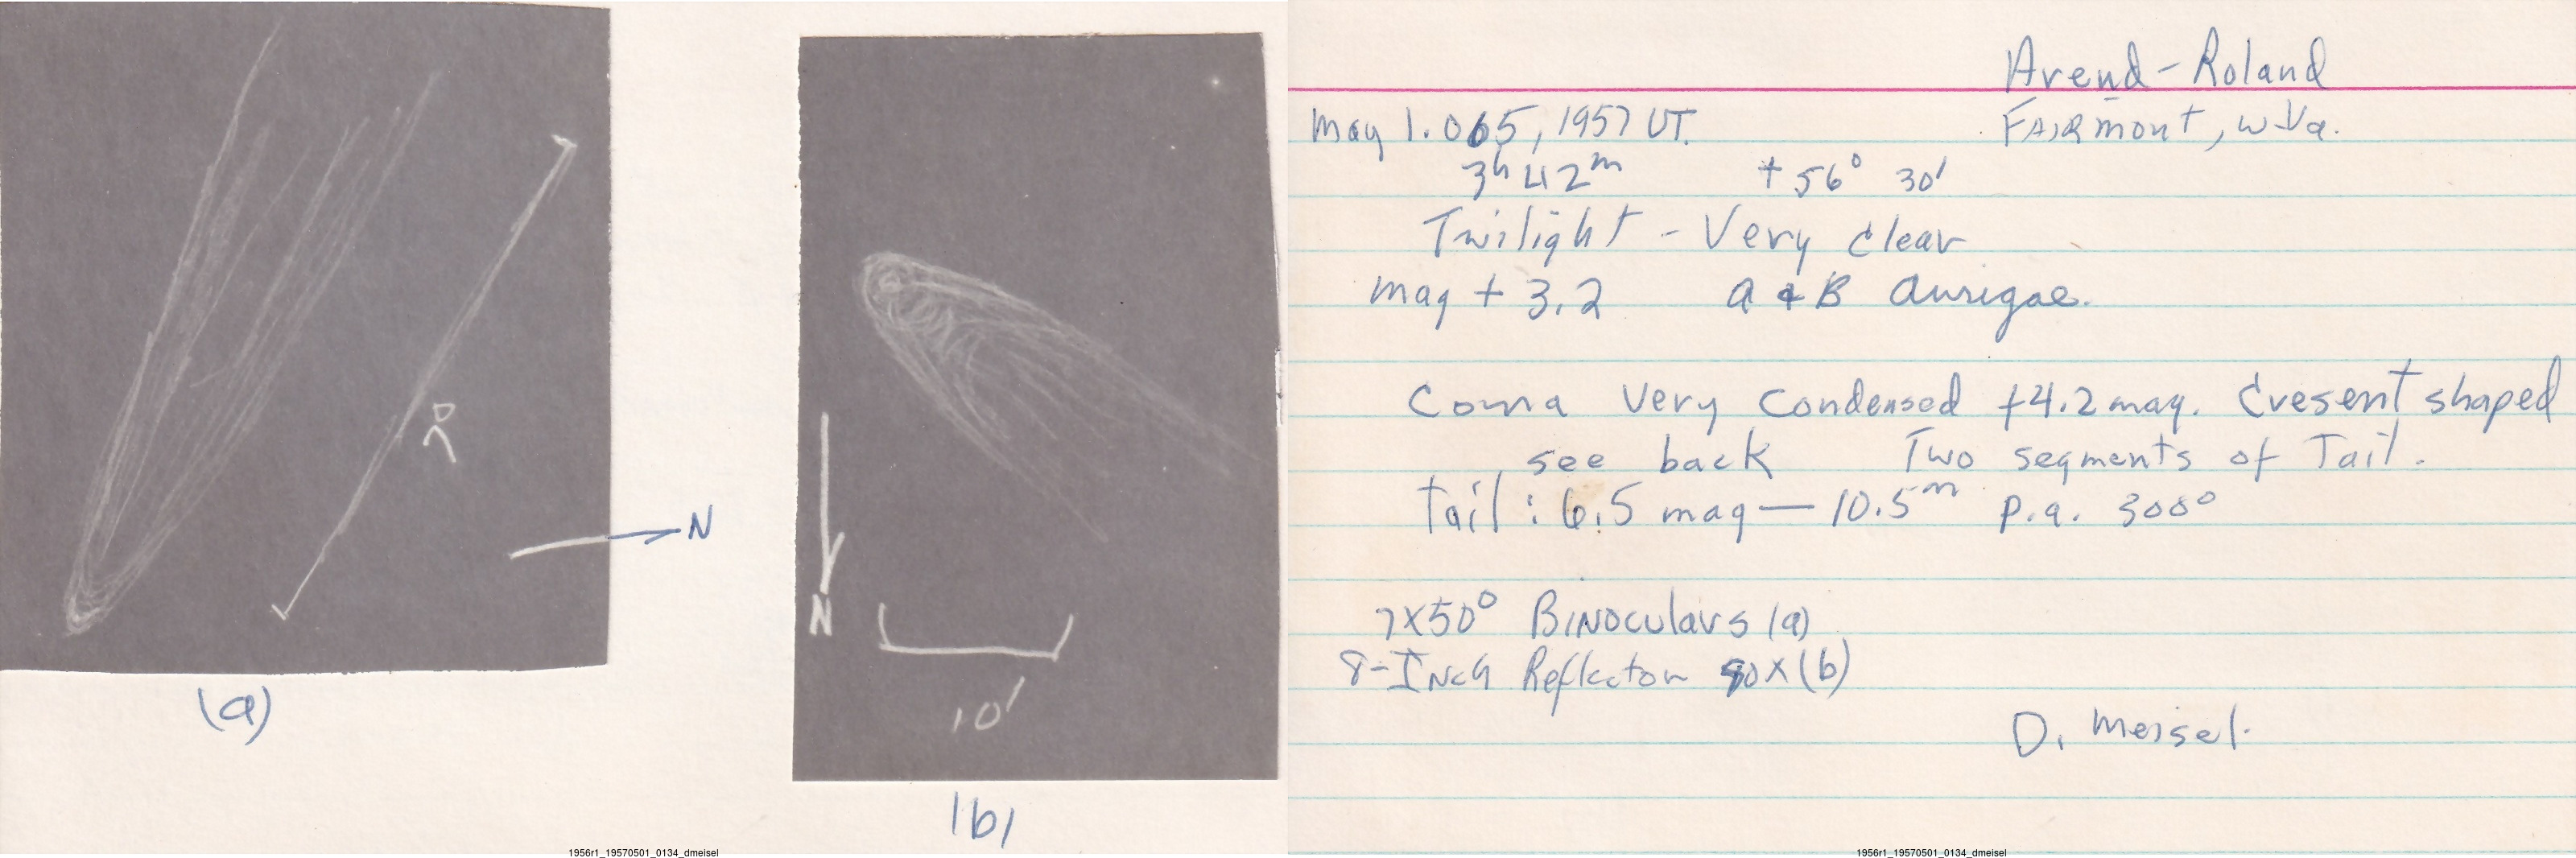 N
(a)
N
10'
(b)
1956r1_19570501_0134_dmeisel
Arend-Roland
May 1.065, 1957 UT.
FAIRmont, W-Va.
3h 42m +56° 30'
Twilight - Very clear
mag + 3.2 a & B Aurigae.
Coma Very Condensed +4.2 mag. Cresent shaped
see back Two segments of Tail.
tail: 6.5 mag — 10.5m p.a. 300°
7X50° BINOculars (a)
8-INch Reflector 90X (b)
D. Meisel.
1956r1_19570501_0134_dmeisel